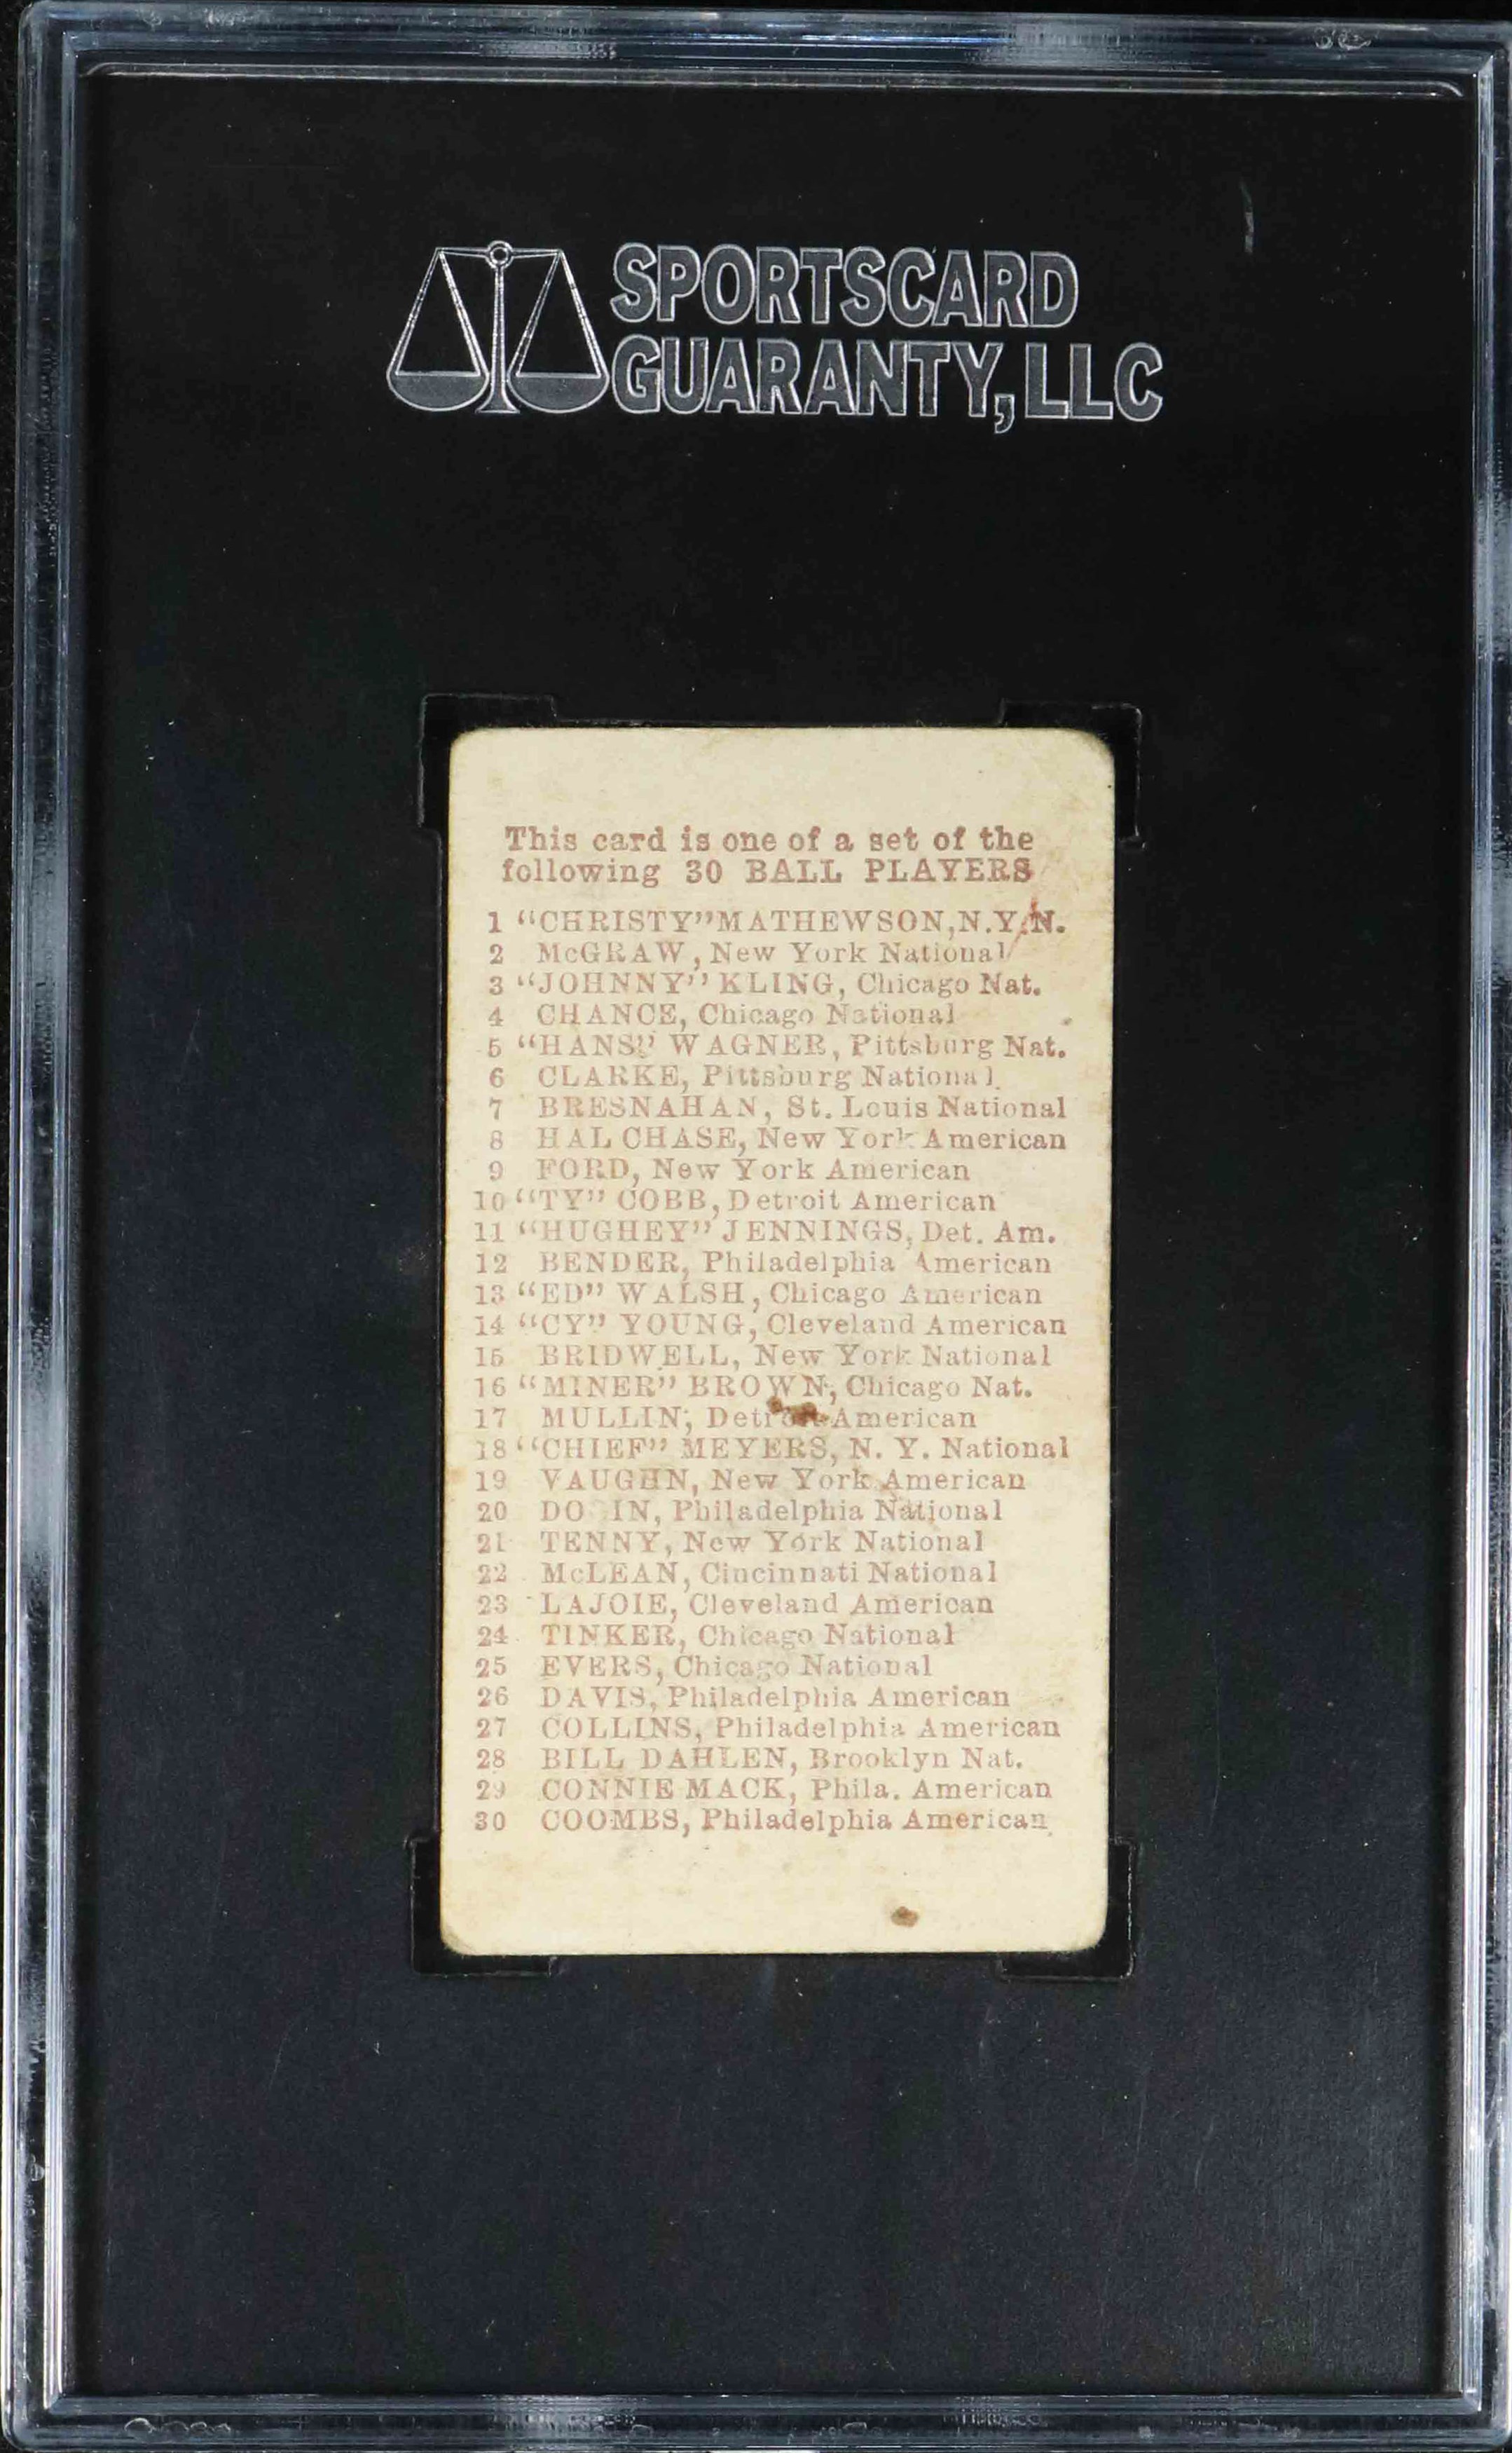 SPORTSCARD
GUARANTY, LLC
This card is one of a set of the
following 30 BALL PLAYERS
1 "CHRISTY" MATHEWSON, N.Y. N.
2 McGRAW, New York National
3 "JOHNNY" KLING, Chicago Nat.
4 CHANCE, Chicago National
5 "HANS" WAGNER, Pittsburg Nat.
6 CLARKE, Pittsburg National
7 BRESNAHAN, St. Louis National
8 HAL CHASE, New York American
9 FORD, New York American
10 "TY" COBB, Detroit American
11 "HUGHEY" JENNINGS, Det. Am.
12 BENDER, Philadelphia American
13 "ED" WALSH, Chicago American
14 "CY" YOUNG, Cleveland American
15 BRIDWELL, New York National
16 "MINER" BROWN, Chicago Nat.
17 MULLIN, Detroit American
18 "CHIEF" MEYERS, N. Y. National
19 VAUGHN, New York American
20 DO IN, Philadelphia National
21 TENNY, New York National
22 McLEAN, Cincinnati National
23 LAJOIE, Cleveland American
24 TINKER, Chicago National
25 EVERS, Chicago National
26 DAVIS, Philadelphia American
27 COLLINS, Philadelphia American
28 BILL DAHLEN, Brooklyn Nat.
29 CONNIE MACK, Phila. American
30 COOMBS, Philadelphia American